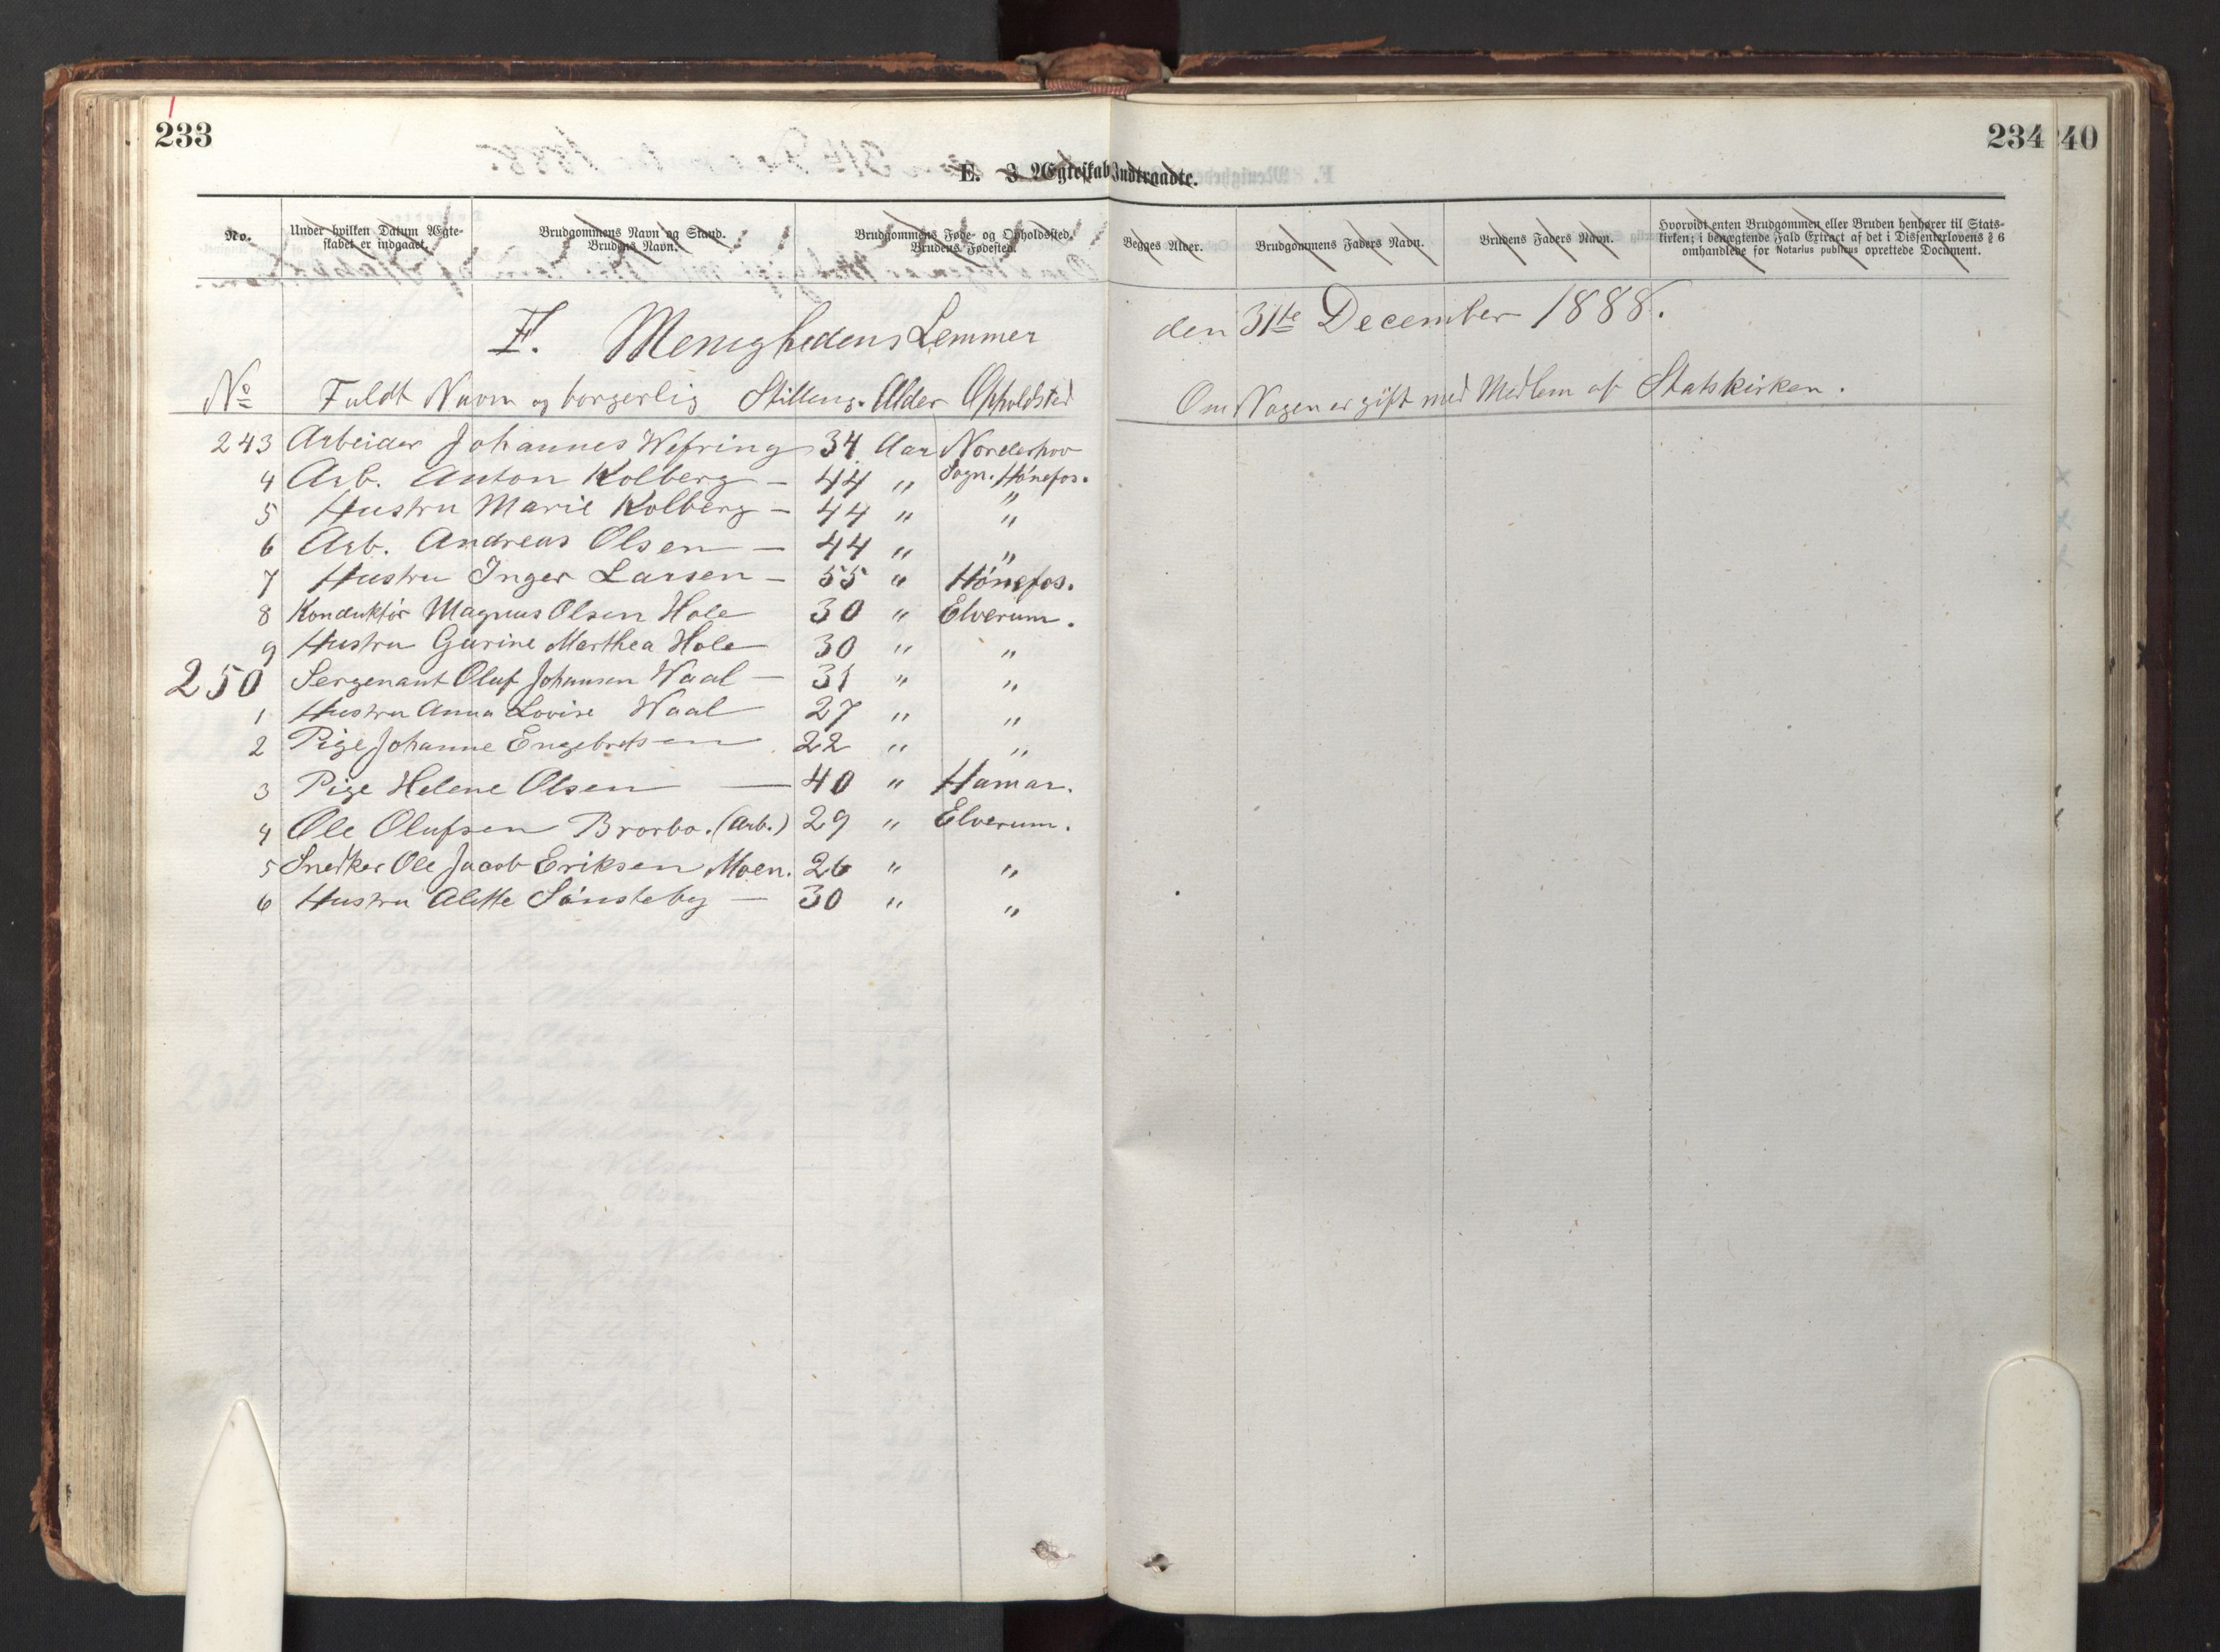 233
234
240
E. I Ægteskab Indtraadte.
No. Under hvilken Datum Ægteskabet er indgaaet. Brudgommens Navn og Stand. Brudens Navn. Brudgommens Føde- og Opholdsted. Brudens Fødested. Begges Alder. Brudgommens Faders Navn. Brudens Faders Navn. Hvorvidt enten Brudgommen eller Bruden henhører til Statskirken; i benægtende Fald Extract af det i Dissenterlovens § 6 omhandlede for Notarius publicus oprettede Document.
F. Menighedens Lemmer den 31te December 1888.
No Fuldt Navn og borgerlig Stilling. Alder Opholdsted Om Nogen er gift med Medlem af Statskirken.
243 Arbeider Johannes Wefring 34 Aar Norderhov
4 Arb. Anton Kolberg – 44 " Sogn. Hönefos.
5 Hustru Marie Kolberg – 44 " "
6 Arb. Andreas Olsen – 44 " "
7 Hustru Inger Larsen – 55 " Hönefos.
8 Konduktör Magnus Olsen Hole 30 " Elverum.
9 Hustru Gurine Marthea Hole 30 " "
250 Sergenant Oluf Johansen Waal – 31 " "
1 Hustru Anna Lovise Waal 27 " "
2 Pige Johanne Engebretsen 22 " "
3 Pige Helene Olsen — 40 " Hamar.
4 Ole Olufsen Brorbo. (Arb.) 29 " Elverum.
5 Snedker Ole Jacob Eriksen Moen. 26 " "
6 Hustru Alette Sönsteby – 30 " "